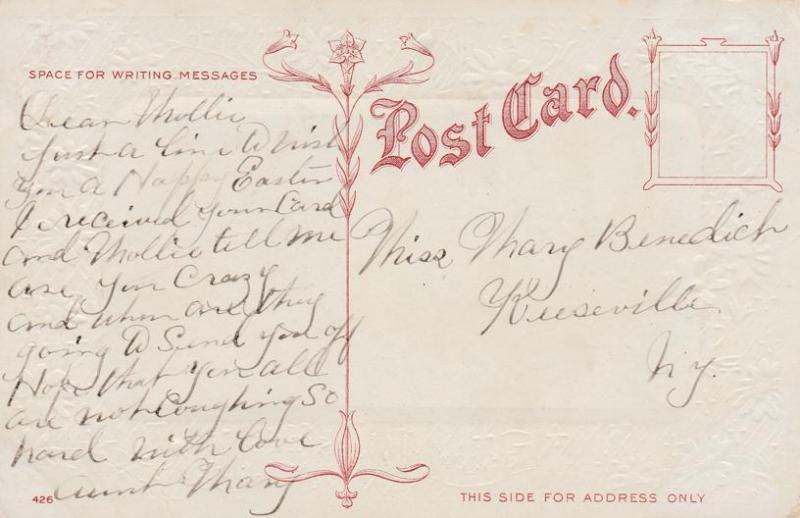 SPACE FOR WRITING MESSAGES
Post Card.
Dear Mollie
Just a line to wish
you a Happy Easter
I received your Card
and Mollie tell me
are you Crazy
and when are they
going to Send you off
Hope that you all
are not Coughing So
hard with love
Aunt Mary
Miss Mary Benedict
Keeseville
N.Y.
426
THIS SIDE FOR ADDRESS ONLY